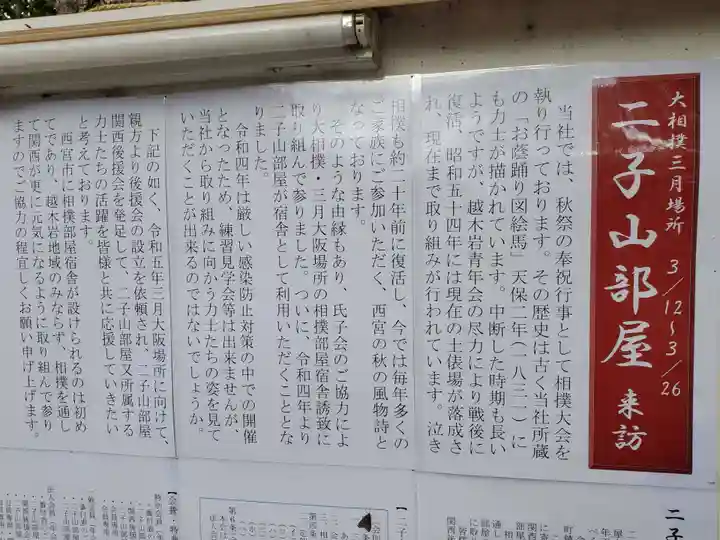 大相撲三月場所 3/12〜3/26
二子山部屋 来訪
当社では、秋祭の奉祝行事として相撲大会を
執り行っております。その歴史は古く当社所蔵
の「お蔭踊り図絵馬」天保二年(一八三一)に
も力士が描かれています。中断した時期も長い
ようですが、越木岩青年会の尽力により戦後に
復活、昭和五十四年には現在の土俵場が落成さ
れ、現在まで取り組みが行われています。泣き
相撲も約二十年前に復活し、今では毎年多くの
ご家族にご参加いただく、西宮の秋の風物詩と
なっております。
そのような由縁もあり、氏子会のご協力によ
り大相撲・三月大阪場所の相撲部屋宿舎誘致に
取り組んで参りました。ついに、令和四年より
二子山部屋が宿舎として利用いただくこととな
りました。
令和四年は厳しい感染防止対策の中での開催
となったため、練習見学会等は出来ませんが、
当社から取り組みに向かう力士たちの姿を見て
いただくことが出来るのではないでしょうか。
下記の如く、令和五年三月大阪場所に向けて、
親方より後援会の設立を依頼され、二子山部屋
関西後援会を発足して、二子山部屋又所属する
力士たちの活躍を皆様と共に応援していきたい
と考えております。
西宮市に相撲部屋宿舎が設けられるのは初め
てであり、越木岩地域のみならず、相撲を通し
て関西が更に元気になるように取り組んで参り
ますのでご協力の程宜しくお願い申し上げます。